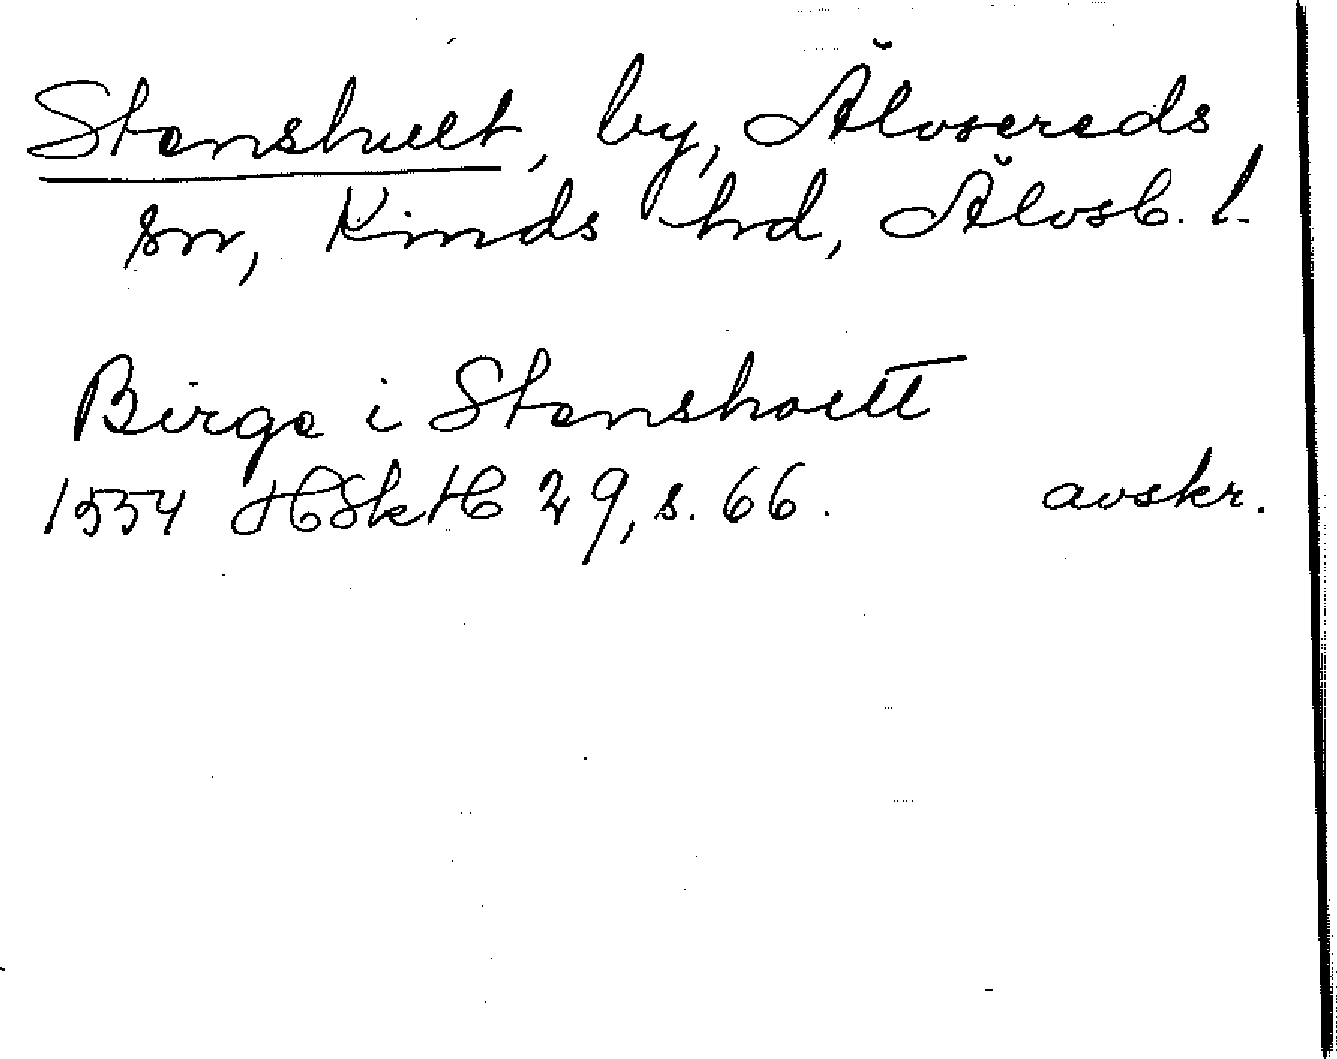 Stenshult, by, Älvsereds
sn, Kinds hd, Älvsb. l.
Birge i Stensholtt
1554 HSkH 29, s. 66. avskr.